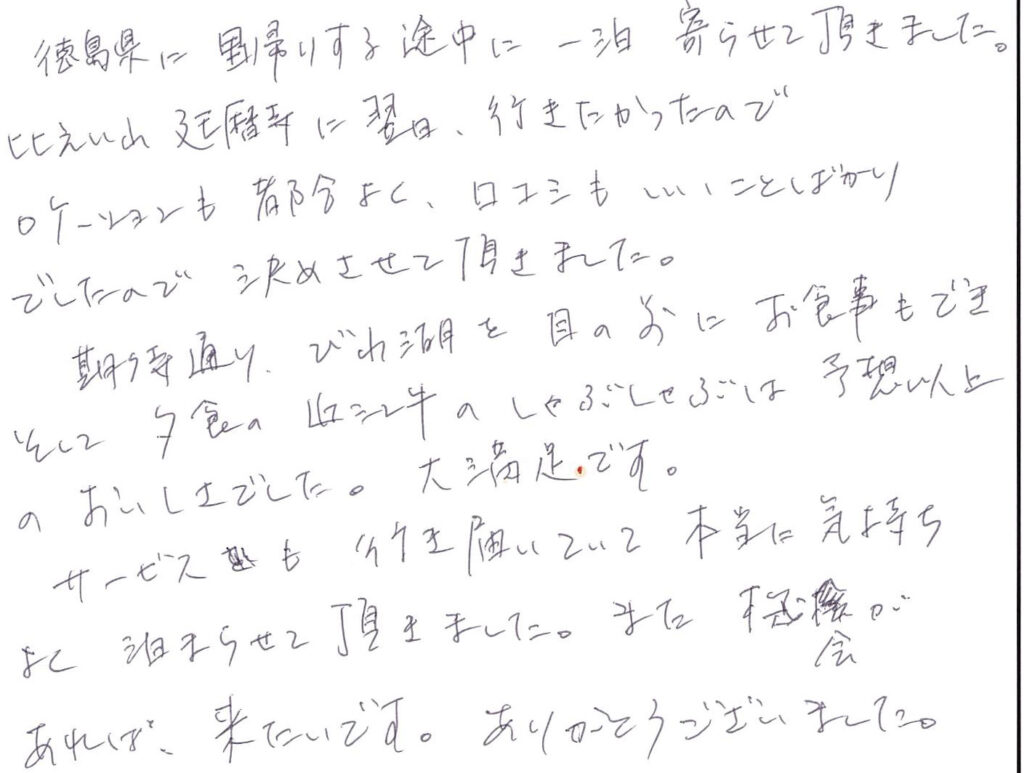 徳島県に里帰りする途中に一泊寄らせて頂きました。
比えい山延暦寺に翌日、行きたかったので
ロケーションも都合よく、口コミもいいことばかり
でしたので決めさせて頂きました。
期待通り、びわ湖を目の前にお食事もでき
そして夕食の近江牛のしゃぶしゃぶは予想以上
のおいしさでした。大満足です。
サービスも行き届いていて本当に気持ち
よく泊まらせて頂きました。また機会が
あれば、来たいです。ありがとうございました。